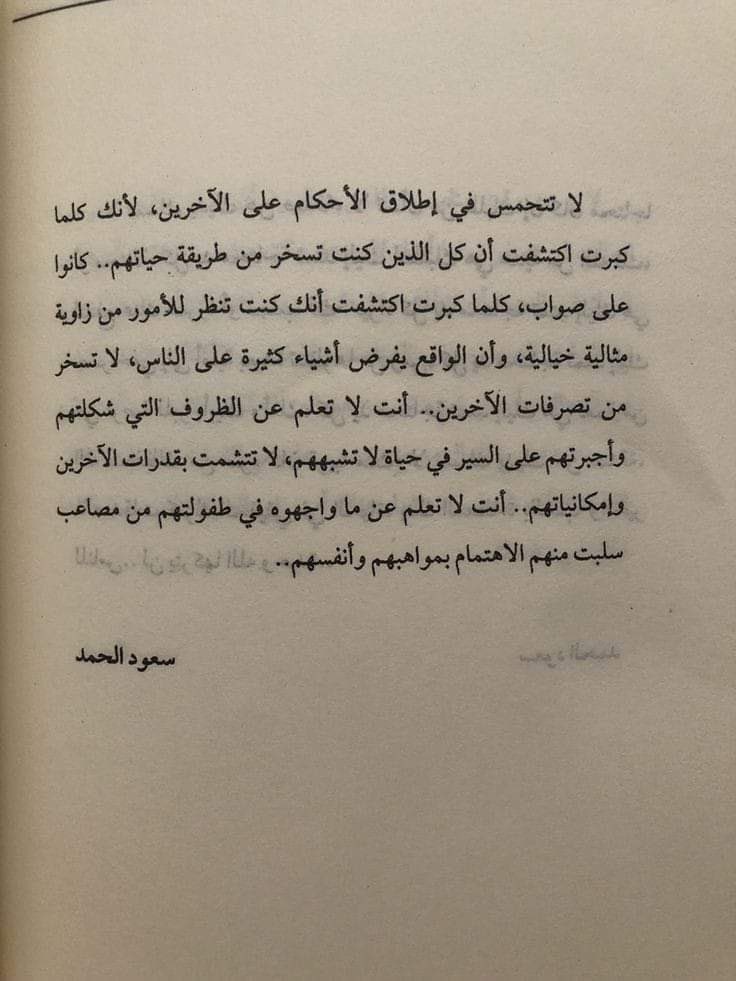 لا تتحمس في إطلاق الأحكام على الآخرين، لأنك كلما
كبرت اكتشفت أن كل الذين كنت تسخر من طريقة حياتهم.. كانوا
على صواب، كلما كبرت اكتشفت أنك كنت تنظر للأمور من زاوية
مثالية خيالية، وأن الواقع يفرض أشياء كثيرة على الناس، لا تسخر
من تصرفات الآخرين.. أنت لا تعلم عن الظروف التي شكلتهم
وأجبرتهم على السير في حياة لا تشبههم، لا تتشمت بقدرات الآخرين
وإمكانياتهم.. أنت لا تعلم عن ما واجهوه في طفولتهم من مصاعب
سلبت منهم الاهتمام بمواهبهم وأنفسهم..
سعود الحمد